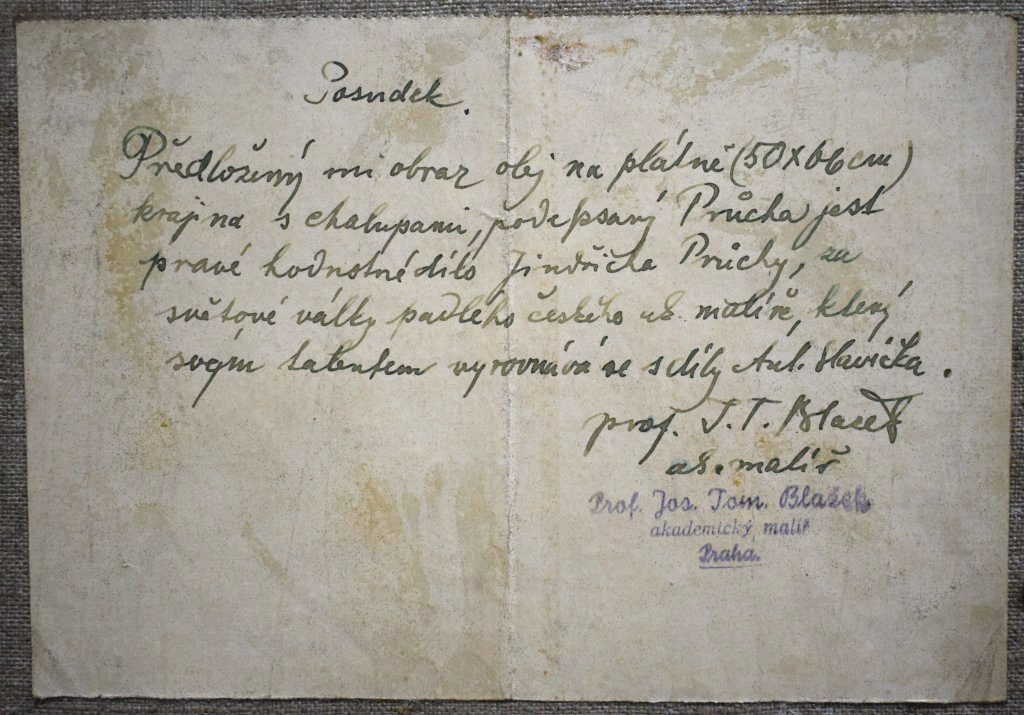 Posudek.
Předložený mi obraz olej na plátně (50x66 cm)
krajina s chalupami, podepsaný Průcha jest
pravé hodnotné dílo Jindřicha Průchy, za
světové války padlého českého ak. malíře, který
svojím talentem vyrovnává se s díly Ant. Slavíčka.
prof. J. T. Blažek
ak. malíř
Prof. Jos. Tom. Blažek
akademický malíř
Praha.